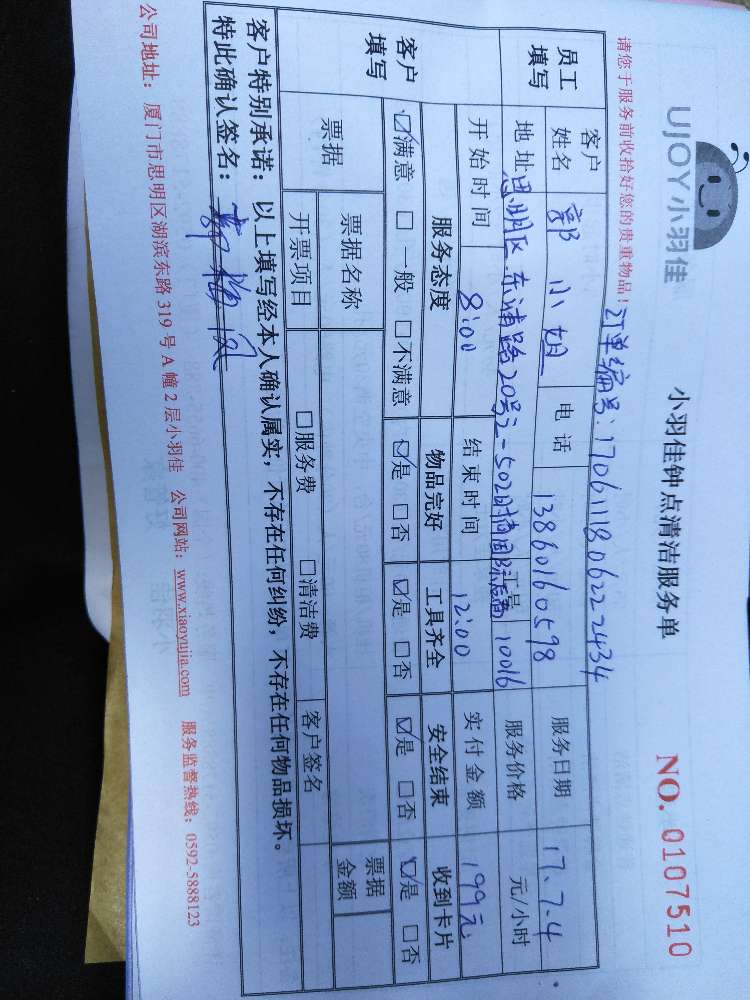 UJOY小羽佳
小羽佳钟点清洁服务单
NO. 0107510
请您于服务前收拾好您的贵重物品!
订单编号:1706111806222434
员工填写
客户姓名 郭小姐 电话 13860160598 服务日期 17.7.4
地址 思明区东浦路20号之一502 工号 10016 服务价格 元/小时
开始时间 8:00 结束时间 12:00 实付金额 199元
客户填写
服务态度 物品完好 工具齐全 安全结束 收到卡片
☑满意 □一般 □不满意 ☑是 □否 ☑是 □否 ☑是 □否 ☑是 □否
票据 票据名称 票据金额
开票项目 □服务费 □清洁费 客户签名
客户特别承诺:以上填写经本人确认属实,不存在任何纠纷,不存在任何物品损坏。
特此确认签名:
公司地址:厦门市思明区湖滨东路319号A幢2层小羽佳 公司网站:www.xiaoyujia.com 服务监督热线:0592-5888123